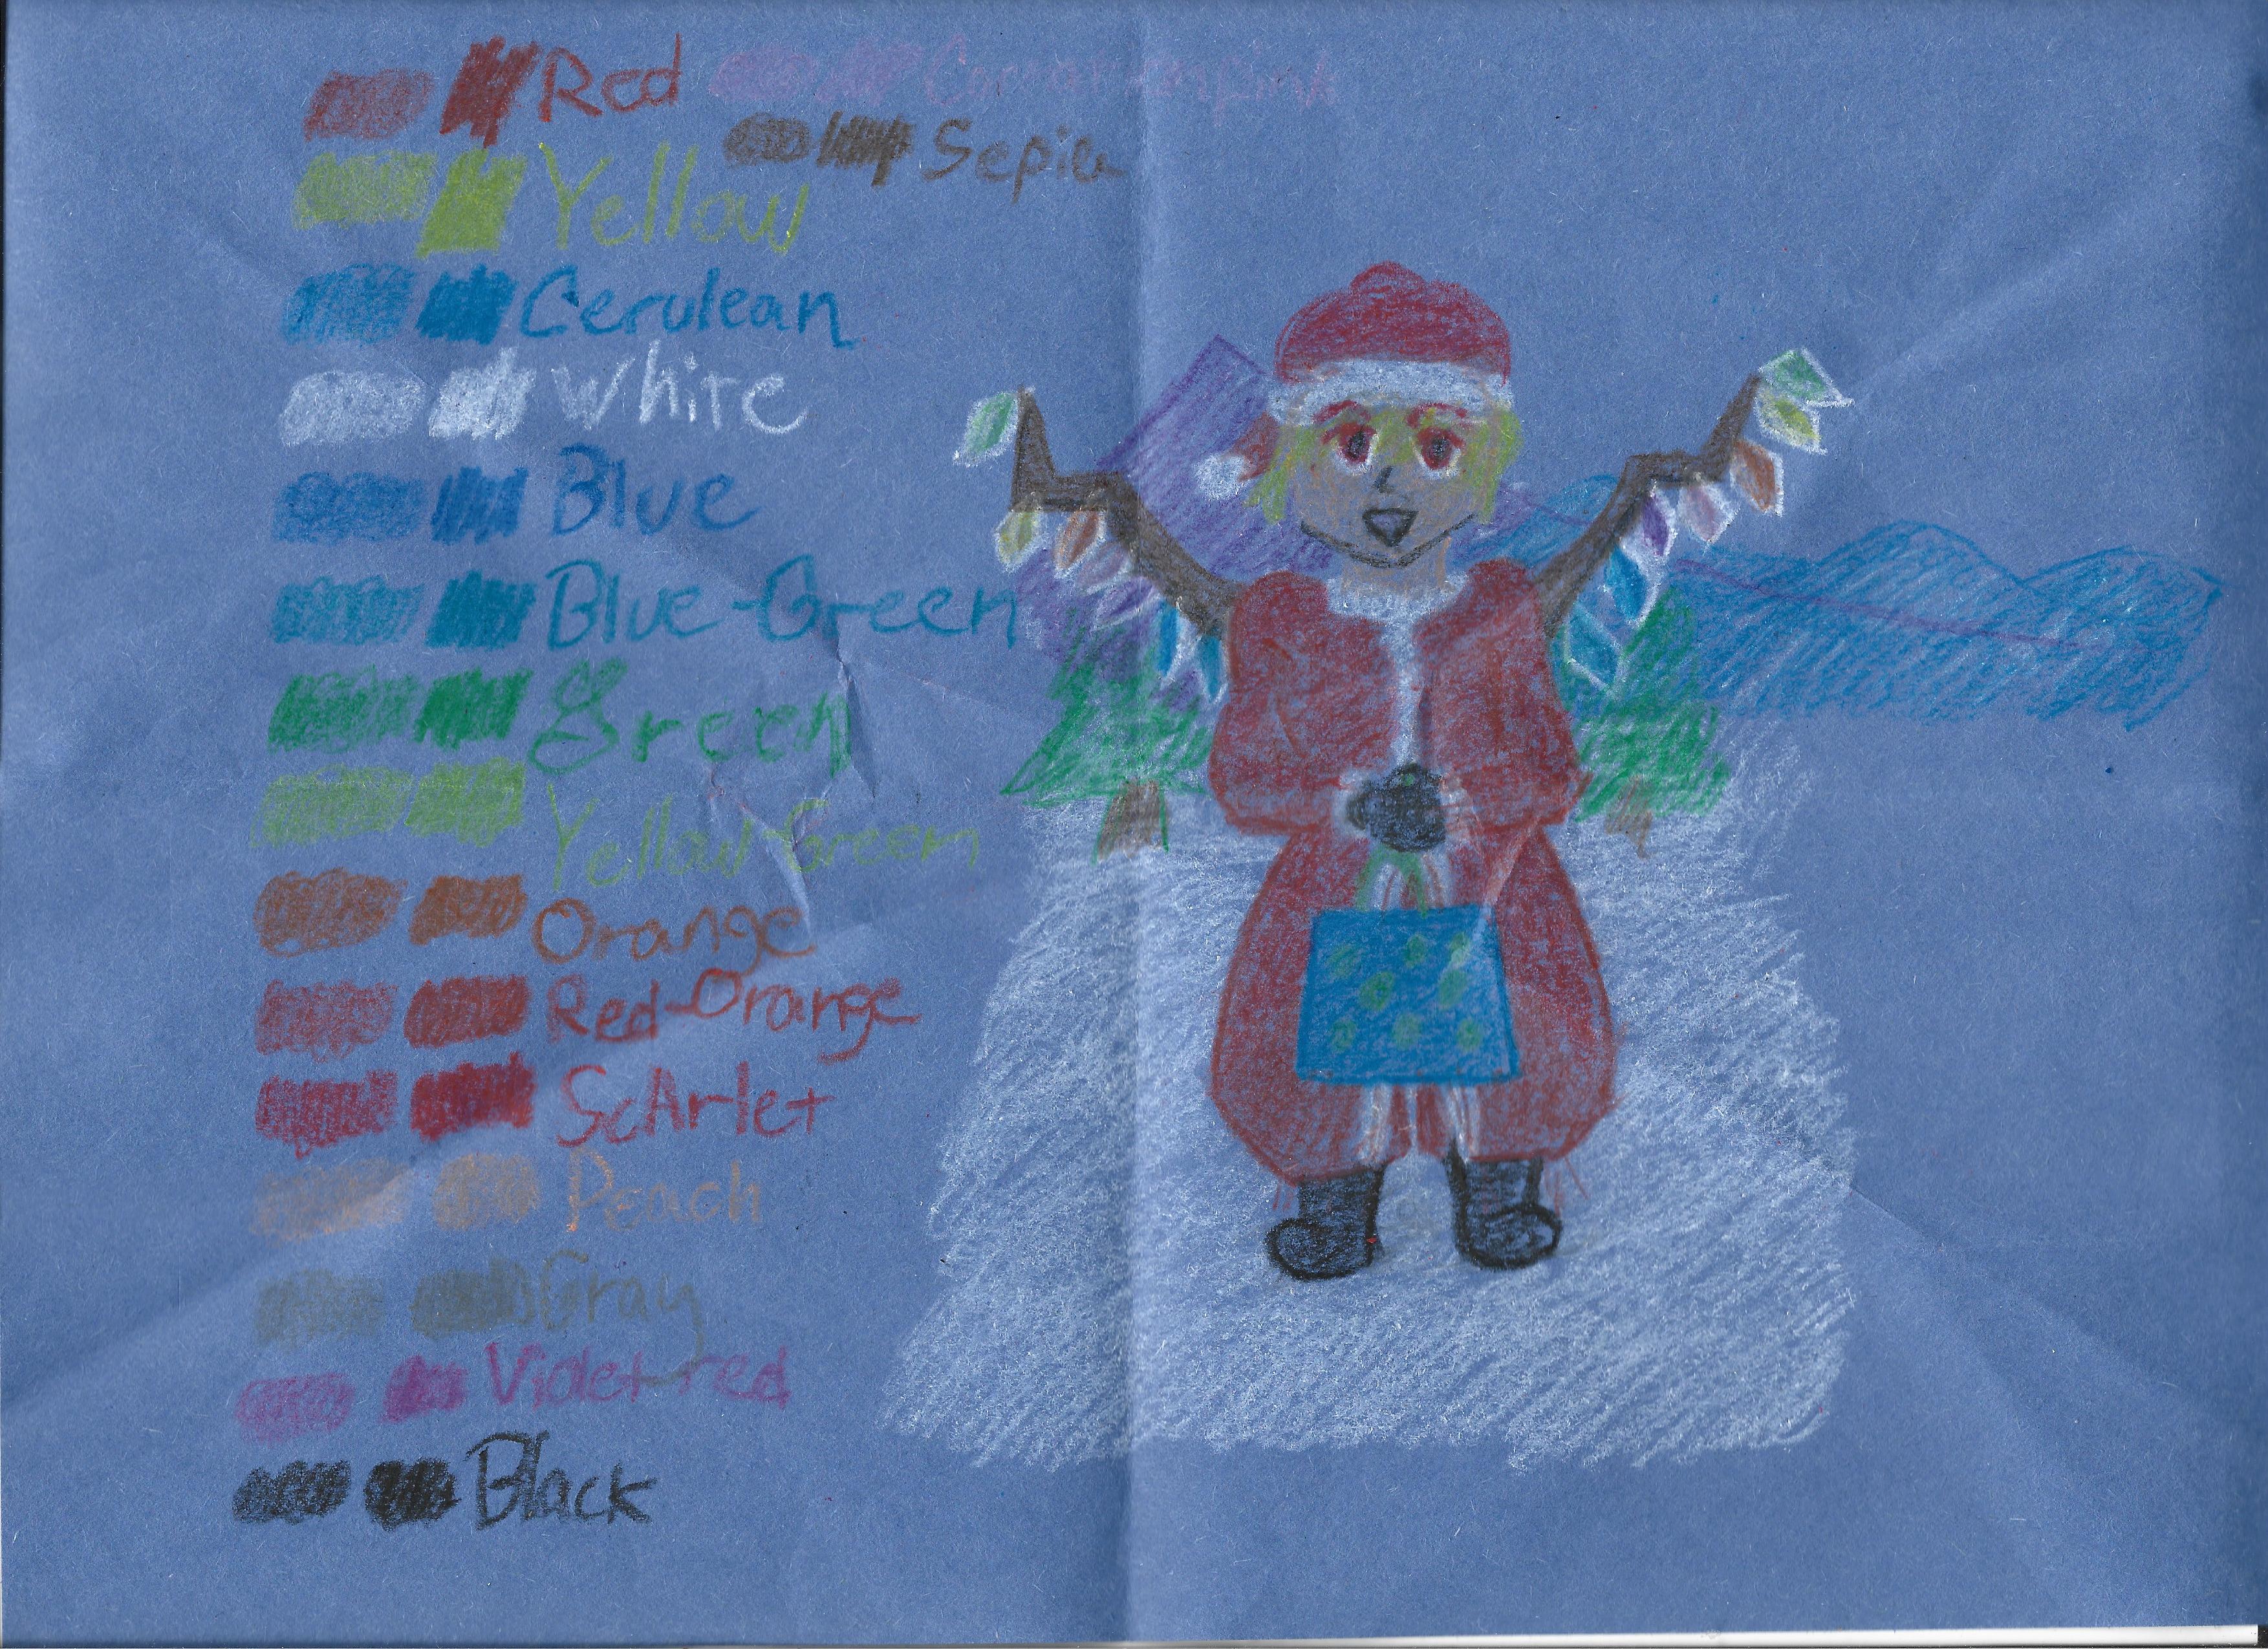 Red
Sepia
Yellow
Cerulean
White
Blue
Blue-Green
green
Yellow-Green
Orange
Red-Orange
ScArlet
Peach
Gray
Violet-red
Black